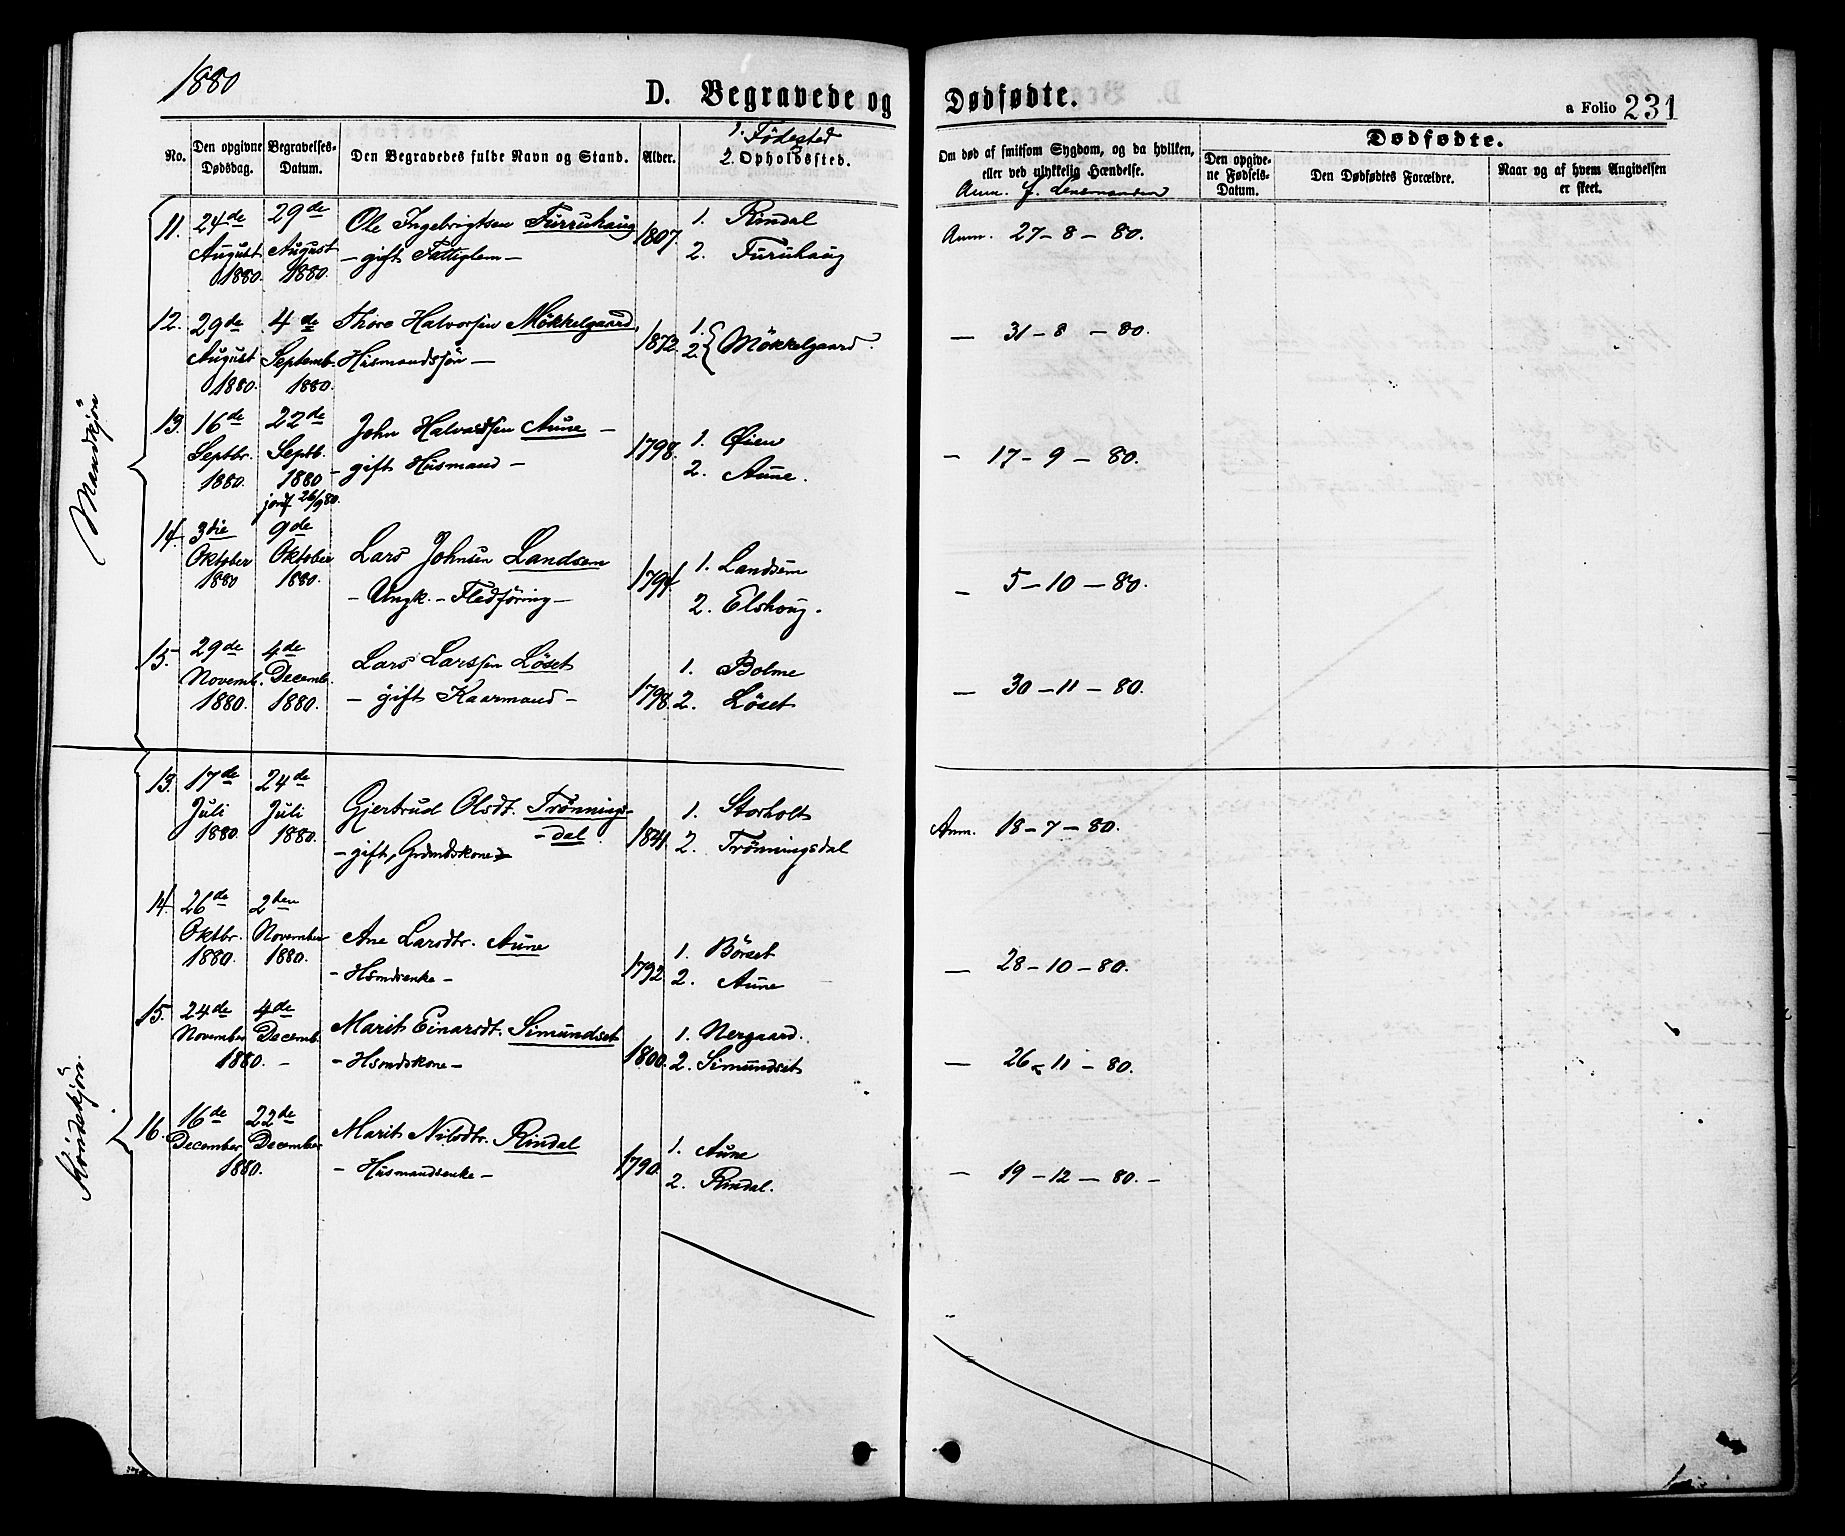 1880
D. Begravede og Dødfødte.
a Folio 231
No.
Den opgivne Dødsdag.
Begravelses-Datum.
Den Begravedes fulde Navn og Stand.
Alder.
1. Födested
2. Opholdssted.
Om død af smitsom Sygdom, og da hvilken,
eller ved ulykkelig Hændelse.
Anm. f. Lensmanden
Dødfødte.
Den opgivne Fødsels-Datum.
Den Dødfødtes Forældre.
Naar og af hvem Angivelsen er skeet.
Mandkjön
11. 24de August 1880. 29de August 1880. Ole Ingebrigtsen Furruhaug 1807. 1. Rindal Anm. 27-8-80.
- gift Fattiglem - 2. Furuhaug
12. 29de August 1880. 4de Septemb. 1880. Thore Halvorsen Mökkelgaard, 1872. 1. 2. { Mökkelgaard. — 31-8-80.
Husmandssön —
13. 16de Septbr. 1880. 22de Septb. 1880 - John Halvordsen Aune - 1798. 1. Øien — 17-9-80.
jordf 26/9 80.
gift Husmand - 2. Aune.
14. 3die Oktober 1880 9de Oktober 1880. Lars Johnsen Landsem 1794. 1. Landsem — 5-10-80.
- Ungk. - Fledföring - 2. Elshoug.
15. 29de Novemb. 1880. 4de Decemb. 1880. Lars Larssen Löset 1798. 1. Bolme — 30-11-80.
- gift Kaarmand - 2. Löset
Kvindekjön.
13. 17de Juli 1880. 24de Juli 1880. Gjertrud Olsdt. Trönnings- 1841. 1. Storholt Anm. 18-7-80.
- dal
- gift, Grmdskone 2. Trönningsdal
14. 26de Oktbr. 1880. 2den November 1880. Ane Larsdtr. Aune 1792. 1. Börset — 28-10-80.
- Hsmdsenke - 2. Aune
15. 24de November 4de Decemb. 1880. - Marit Einarsdt. Simundset 1800. 1. Nergaard. — 26-11-80.
- Hsmdskone - 2. Simundset
16. 16de December 22de December 1880. Marit Nilsdtr. Rindal 1790. 1. Aune — 19-12-80.-
- Husmandsenke - 2. Rindal.